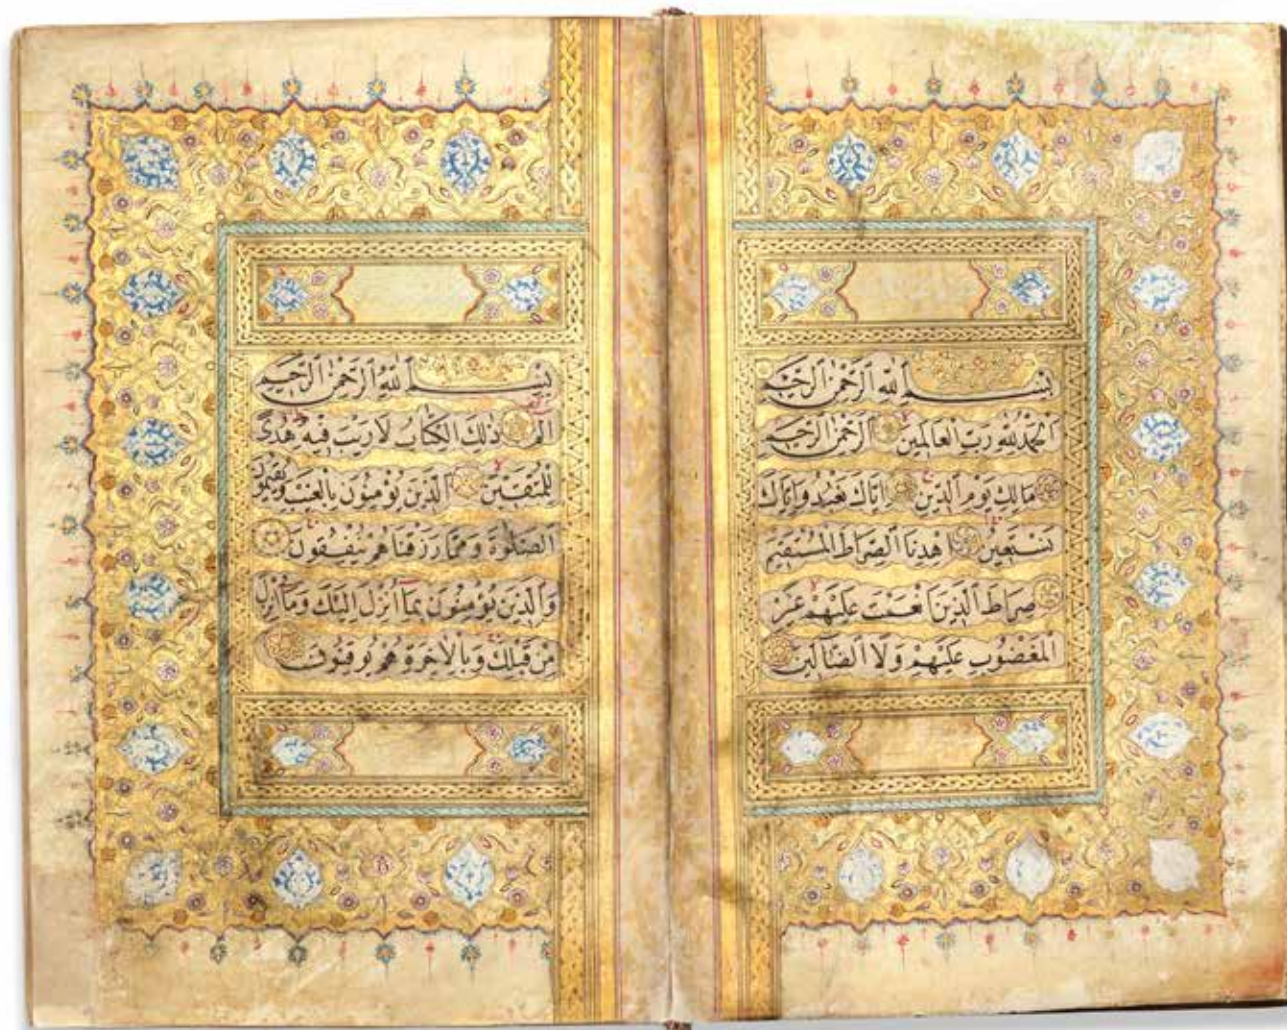 بِسْمِ اللهِ الرَّحْمٰنِ الرَّحِيمِ
اَلْحَمْدُ لِلهِ رَبِّ الْعَالَمِينَ الرَّحْمٰنِ الرَّحِيمِ
مَالِكِ يَوْمِ الدِّينِ اِيَّاكَ نَعْبُدُ وَاِيَّاكَ
نَسْتَعِينُ اِهْدِنَا الصِّرَاطَ الْمُسْتَقِيمَ
صِرَاطَ الَّذِينَ اَنْعَمْتَ عَلَيْهِمْ غَيْرِ
الْمَغْضُوبِ عَلَيْهِمْ وَلَا الضَّالِّينَ
بِسْمِ اللهِ الرَّحْمٰنِ الرَّحِيمِ
الم ذٰلِكَ الْكِتَابُ لَا رَيْبَ فِيهِ هُدًى
لِلْمُتَّقِينَ الَّذِينَ يُؤْمِنُونَ بِالْغَيْبِ وَيُقِيمُونَ
الصَّلٰوةَ وَمِمَّا رَزَقْنَاهُمْ يُنْفِقُونَ
وَالَّذِينَ يُؤْمِنُونَ بِمَا اُنْزِلَ اِلَيْكَ وَمَا اُنْزِلَ
مِنْ قَبْلِكَ وَبِالْاٰخِرَةِ هُمْ يُوقِنُونَ